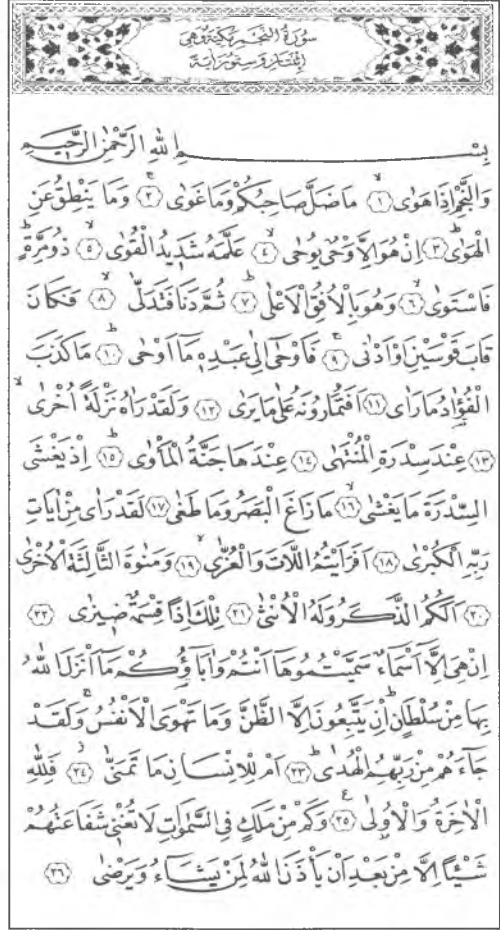 سُورَةُ النَّجْمِ مَكِّيَّةٌ وَهِيَ
اِثْنَتَانِ وَسِتُّونَ اٰيَةً
بِسْمِ اللّٰهِ الرَّحْمٰنِ الرَّحِيمِ
وَالنَّجْمِ اِذَا هَوٰىۙ ﴿١﴾ مَا ضَلَّ صَاحِبُكُمْ وَمَا غَوٰىۚ ﴿٢﴾ وَمَا يَنْطِقُ عَنِ
الْهَوٰىۜ ﴿٣﴾ اِنْ هُوَ اِلَّا وَحْيٌ يُوحٰىۙ ﴿٤﴾ عَلَّمَهُ شَدِيدُ الْقُوٰىۙ ﴿٥﴾ ذُو مِرَّةٍۜ
فَاسْتَوٰىۙ ﴿٦﴾ وَهُوَ بِالْاُفُقِ الْاَعْلٰىۜ ﴿٧﴾ ثُمَّ دَنَا فَتَدَلّٰىۙ ﴿٨﴾ فَكَانَ
قَابَ قَوْسَيْنِ اَوْ اَدْنٰىۚ ﴿٩﴾ فَاَوْحٰٓى اِلٰى عَبْدِهٖ مَٓا اَوْحٰىۜ ﴿١٠﴾ مَا كَذَبَ
الْفُؤٰادُ مَا رَاٰى ﴿١١﴾ اَفَتُمَارُونَهُ عَلٰى مَا يَرٰى ﴿١٢﴾ وَلَقَدْ رَاٰهُ نَزْلَةً اُخْرٰىۙ
﴿١٣﴾ عِنْدَ سِدْرَةِ الْمُنْتَهٰى ﴿١٤﴾ عِنْدَهَا جَنَّةُ الْمَأْوٰىۜ ﴿١٥﴾ اِذْ يَغْشَى
السِّدْرَةَ مَا يَغْشٰىۙ ﴿١٦﴾ مَا زَاغَ الْبَصَرُ وَمَا طَغٰى ﴿١٧﴾ لَقَدْ رَاٰى مِنْ اٰيَاتِ
رَبِّهِ الْكُبْرٰى ﴿١٨﴾ اَفَرَاَيْتُمُ اللَّاتَ وَالْعُزّٰىۙ ﴿١٩﴾ وَمَنٰوةَ الثَّالِثَةَ الْاُخْرٰى
﴿٢٠﴾ اَلَكُمُ الذَّكَرُ وَلَهُ الْاُنْثٰى ﴿٢١﴾ تِلْكَ اِذًا قِسْمَةٌ ضِيزٰى ﴿٢٢﴾
اِنْ هِيَ اِلَّٓا اَسْمَٓاءٌ سَمَّيْتُمُوهَٓا اَنْتُمْ وَاٰبَٓاؤُ۬كُمْ مَٓا اَنْزَلَ اللّٰهُ
بِهَا مِنْ سُلْطَانٍۜ اِنْ يَتَّبِعُونَ اِلَّا الظَّنَّ وَمَا تَهْوَى الْاَنْفُسُۚ وَلَقَدْ
جَٓاءَهُمْ مِنْ رَبِّهِمُ الْهُدٰىۜ ﴿٢٣﴾ اَمْ لِلْاِنْسَانِ مَا تَمَنّٰىۘ ﴿٢٤﴾ فَلِلّٰهِ
الْاٰخِرَةُ وَالْاُو۫لٰى۟ ﴿٢٥﴾ وَكَمْ مِنْ مَلَكٍ فِي السَّمٰوَاتِ لَا تُغْنِي شَفَاعَتُهُمْ
شَيْـًٔا اِلَّا مِنْ بَعْدِ اَنْ يَأْذَنَ اللّٰهُ لِمَنْ يَشَٓاءُ وَيَرْضٰى ﴿٢٦﴾